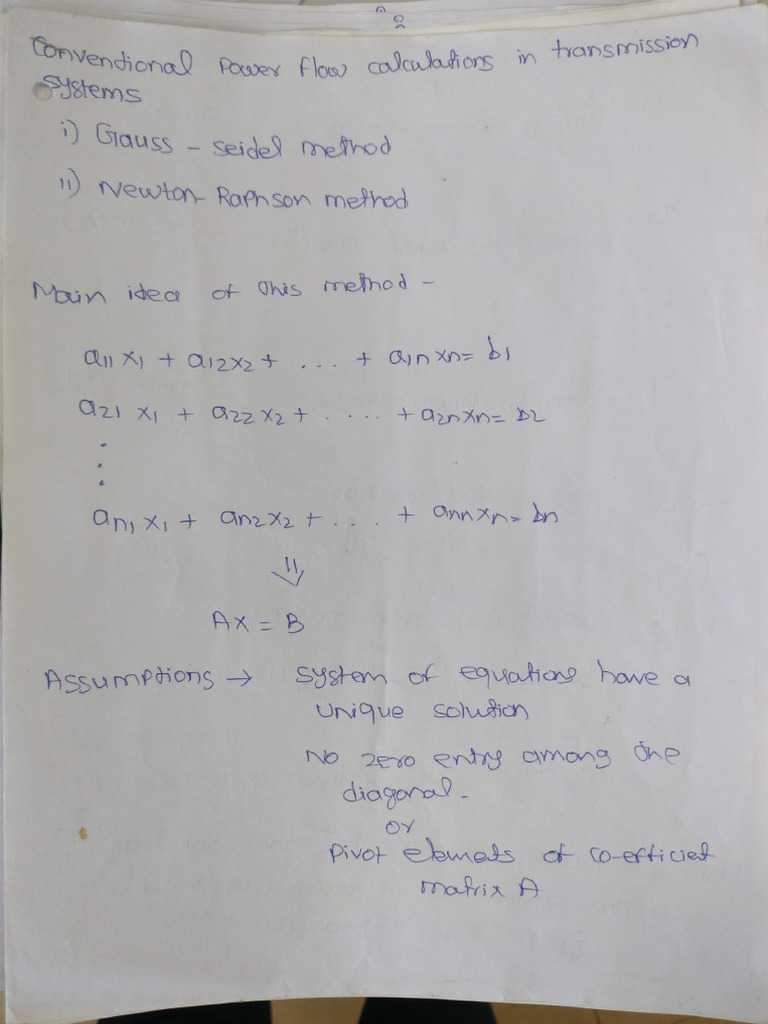 2
Conventional Power flow calculations in transmission
systems
i) Gauss - seidel method
ii) Newton-Raphson method
Main idea of this method -
a11 x1 + a12x2 + ... + a1n xn = b1
a21 x1 + a22 x2 + .... + a2n xn = b2
:
an1 x1 + an2 x2 + .... + ann xn = bn
⇓
Ax = B
Assumptions → system of equations have a
unique solution
No zero entry among the
diagonal -
or
pivot elemets of co-efficiet
matrix A